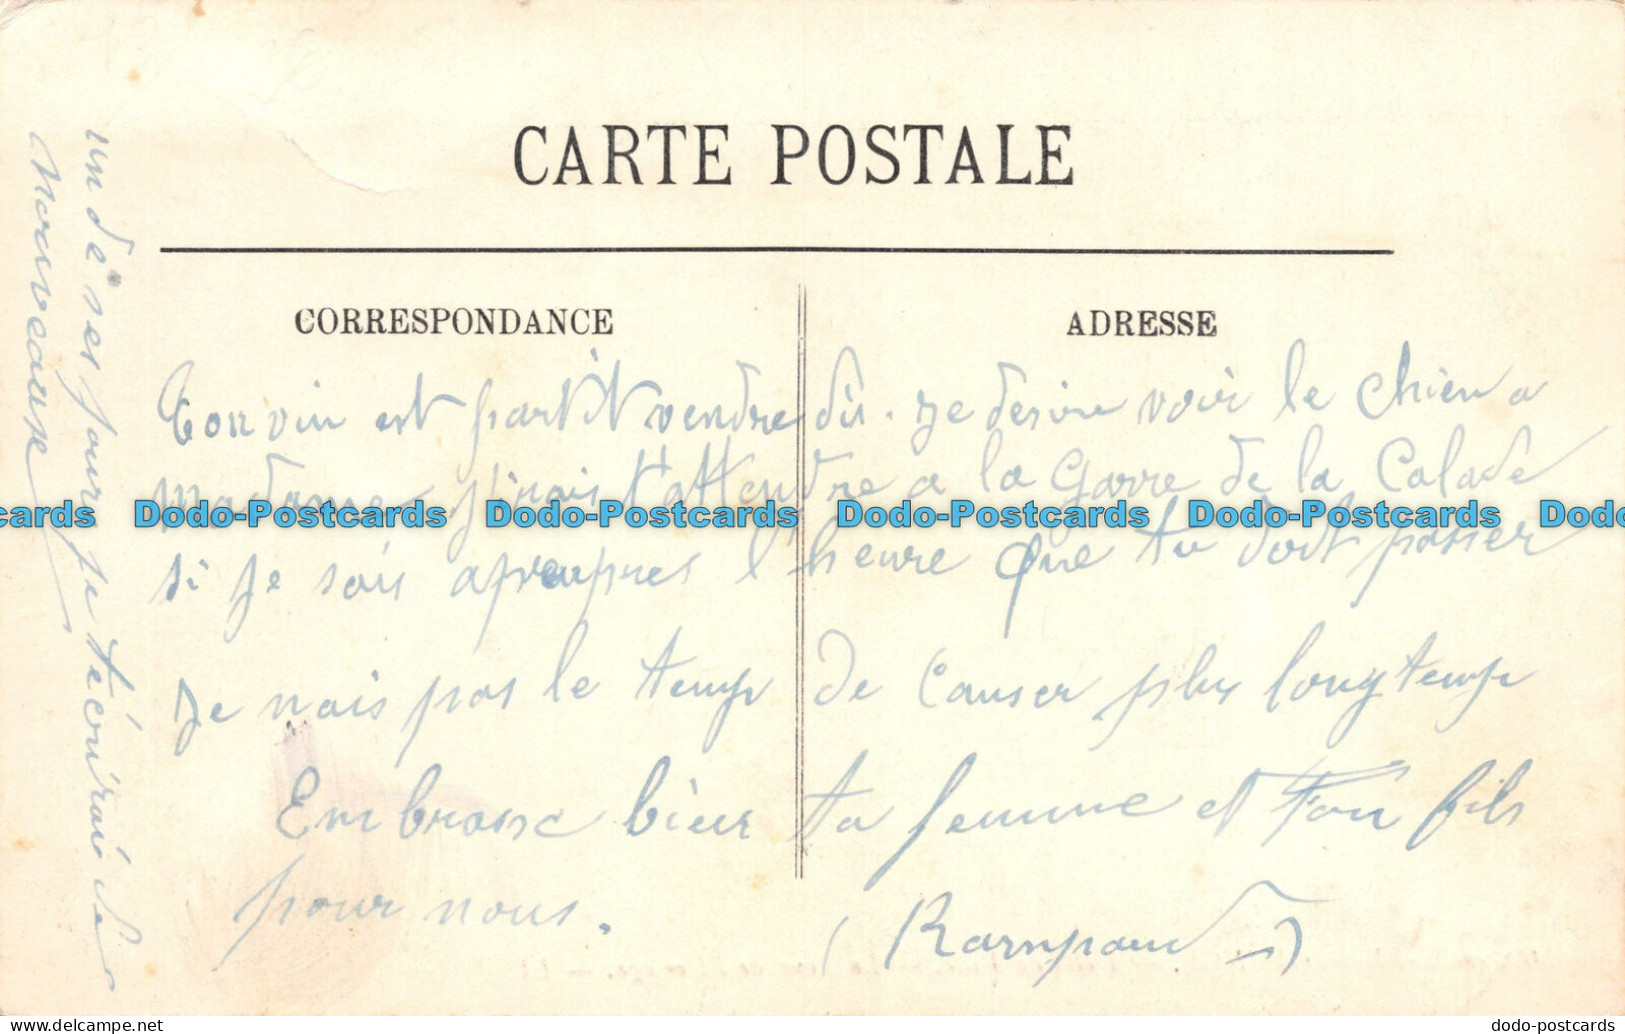 CARTE POSTALE
CORRESPONDANCE
ADRESSE
Ton vin est partit vendredi. Je desire voir le chien a
madame j'irais t'attendre a la Garre de la Calade
si je sais apeupres l'heure que tu doit passer
Je nais pas le temp de causer plus longtemp
Embrasse bien ta femme et ton fils
pour nous.
(Rampaud)
un de ses jour je t'écrirai de
nouveaux
cards Dodo-Postcards Dodo-Postcards Dodo-Postcards Dodo-Postcards Dodo
www.delcampe.net
dodo-postcards